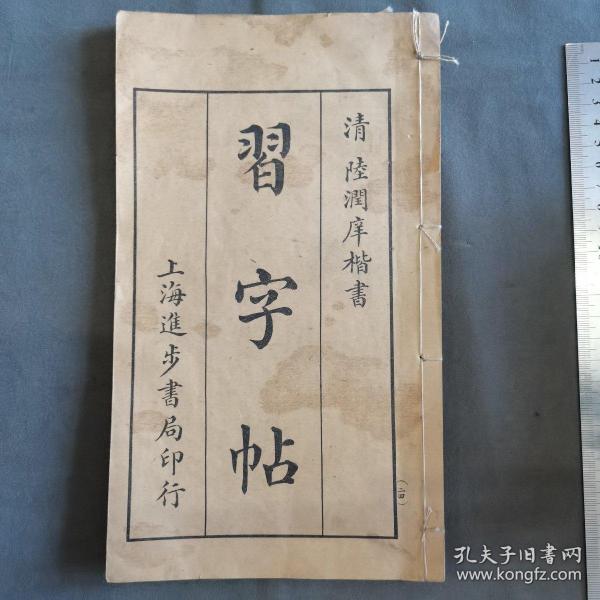 清 陸潤庠楷書
習字帖
上海進步書局印行
孔夫子旧书网
www.kongfz.com